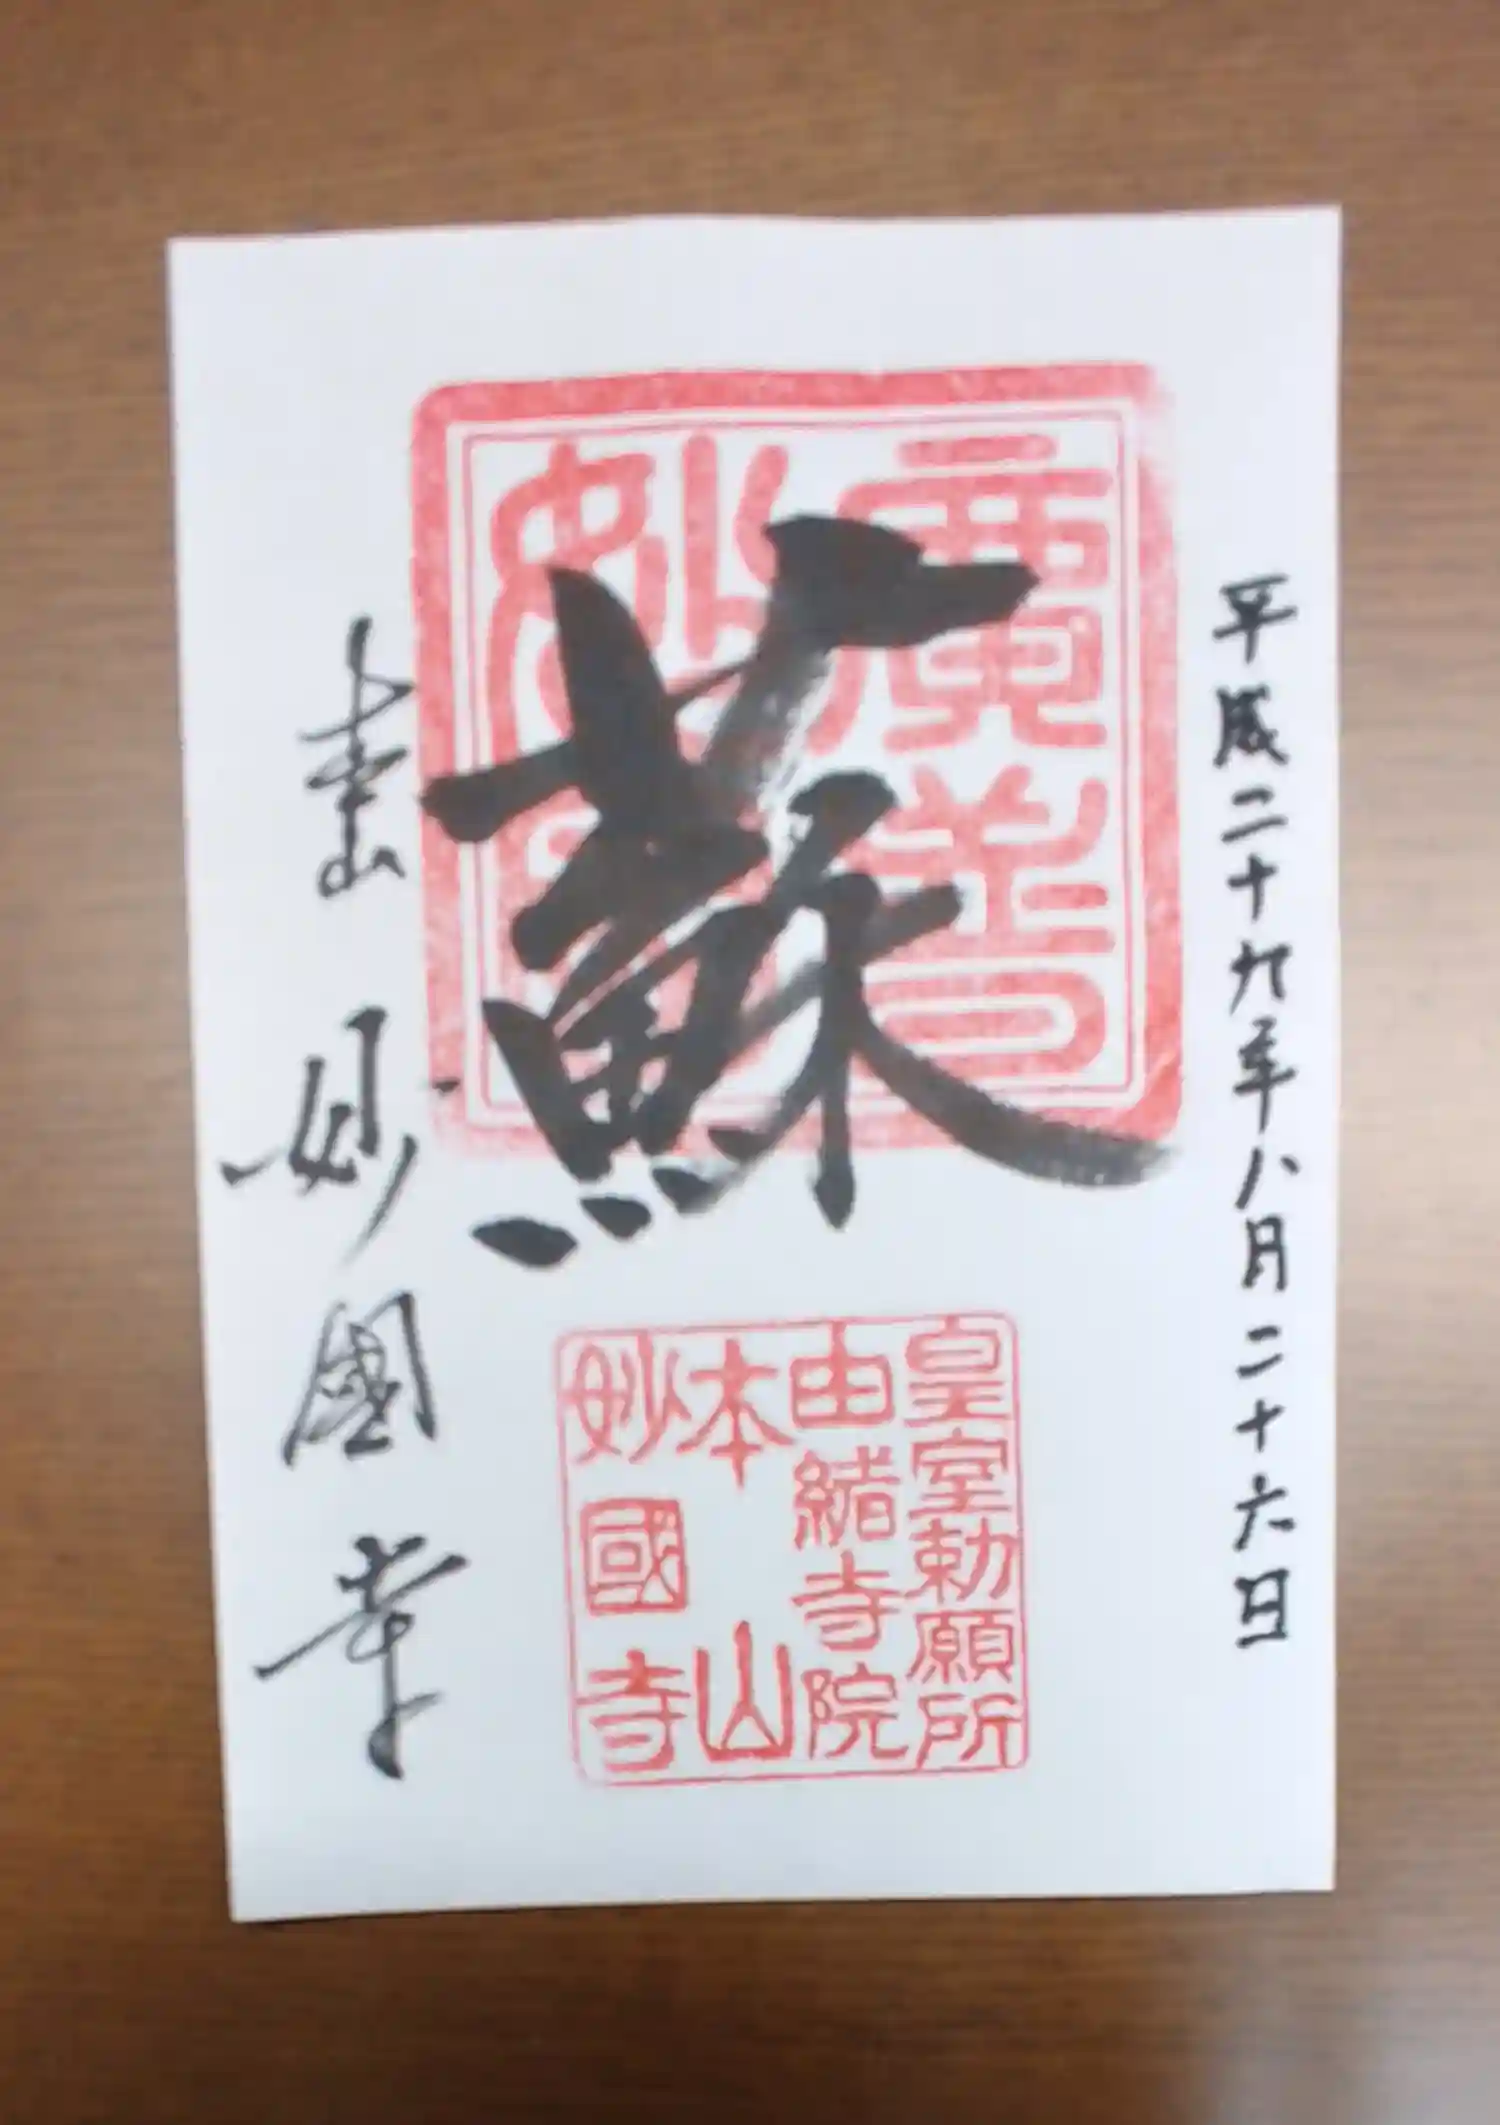 平成二十九年八月二十六日
廣普
妙
蘇
皇室勅願所
由緒寺院
本山
妙國寺
本山 妙國寺